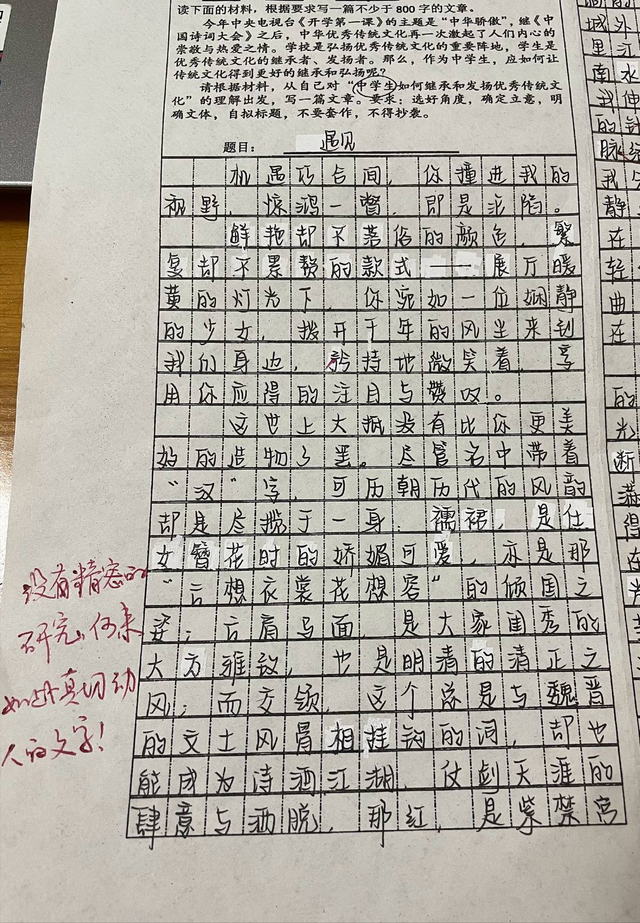 读下面的材料，根据要求写一篇不少于 800 字的文章。
今年中央电视台《开学第一课》的主题是“中华骄傲”，继《中
国诗词大会》之后，中华优秀传统文化再一次激起了人们内心的
崇敬与热爱之情。学校是弘扬优秀传统文化的重要阵地，学生是
优秀传统文化的继承者、发扬者。那么，作为中学生，应如何让
传统文化得到更好的继承和弘扬呢？
请根据材料，从自己对“中学生如何继承和发扬优秀传统文
化”的理解出发，写一篇文章。要求：选好角度，确定立意，明
确文体，自拟标题，不要套作，不得抄袭。
题目：遇见
机遇巧合间，你撞进我的
视野，惊鸿一瞥，即是沦陷。
鲜艳却不落俗的颜色，繁
复却不累赘的款式——展厅暖
黄的灯光下，你宛如一位娴静
的少女，拨开千年的风尘来到
我们身边，矜持地微笑着，享
用你应得的注目与赞叹。
这世上大抵没有比你更美
好的造物了罢。尽管名中带着
“汉”字，可历朝历代的风韵
却是尽揽于一身：襦裙，是仕
女簪花时的娇媚可爱，亦是那
“云想衣裳花想容”的倾国之
姿；云肩马面，是大家闺秀的
大方雅致，也是明清的清正之
风；而交领，这个总是与魏晋
的文士风骨相挂钩的词，却也
能成为诗酒江湖，仗剑天涯的
肆意与洒脱。那红，是紫禁宫
没有精密的
研究，何来
如此真切动
人的文字！
城外
里江
南水
我伸
的针
脉络
静
在
轻
曲
在
的
光
断
恭
得
在